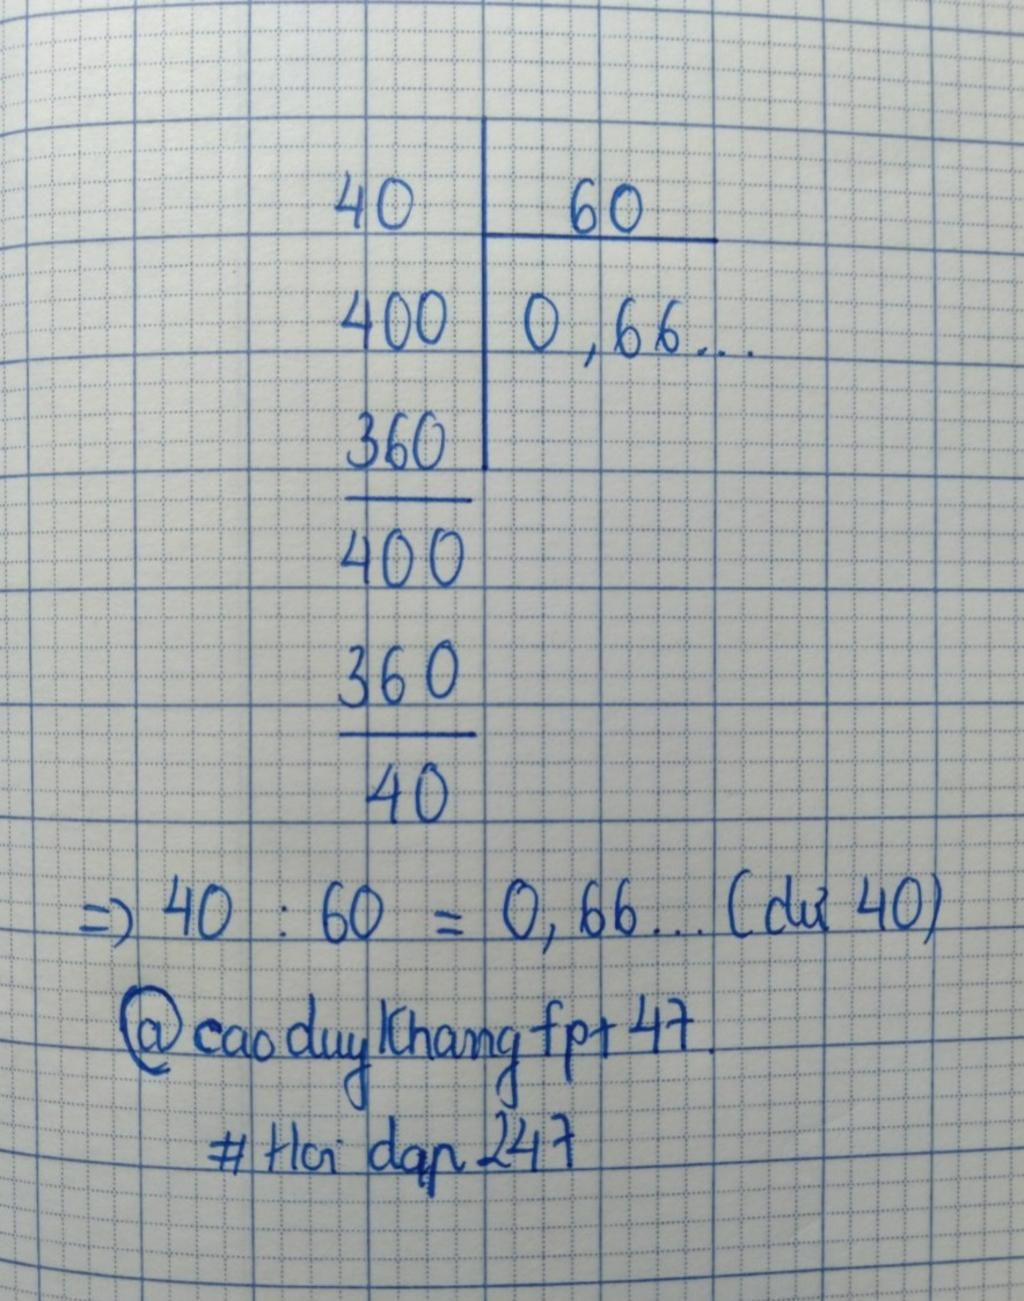 40 60
400 0,66...
360
400
360
40
=> 40 : 60 = 0,66... (dư 40)
@caoduyKhangfpt47
# Hoi dap 247